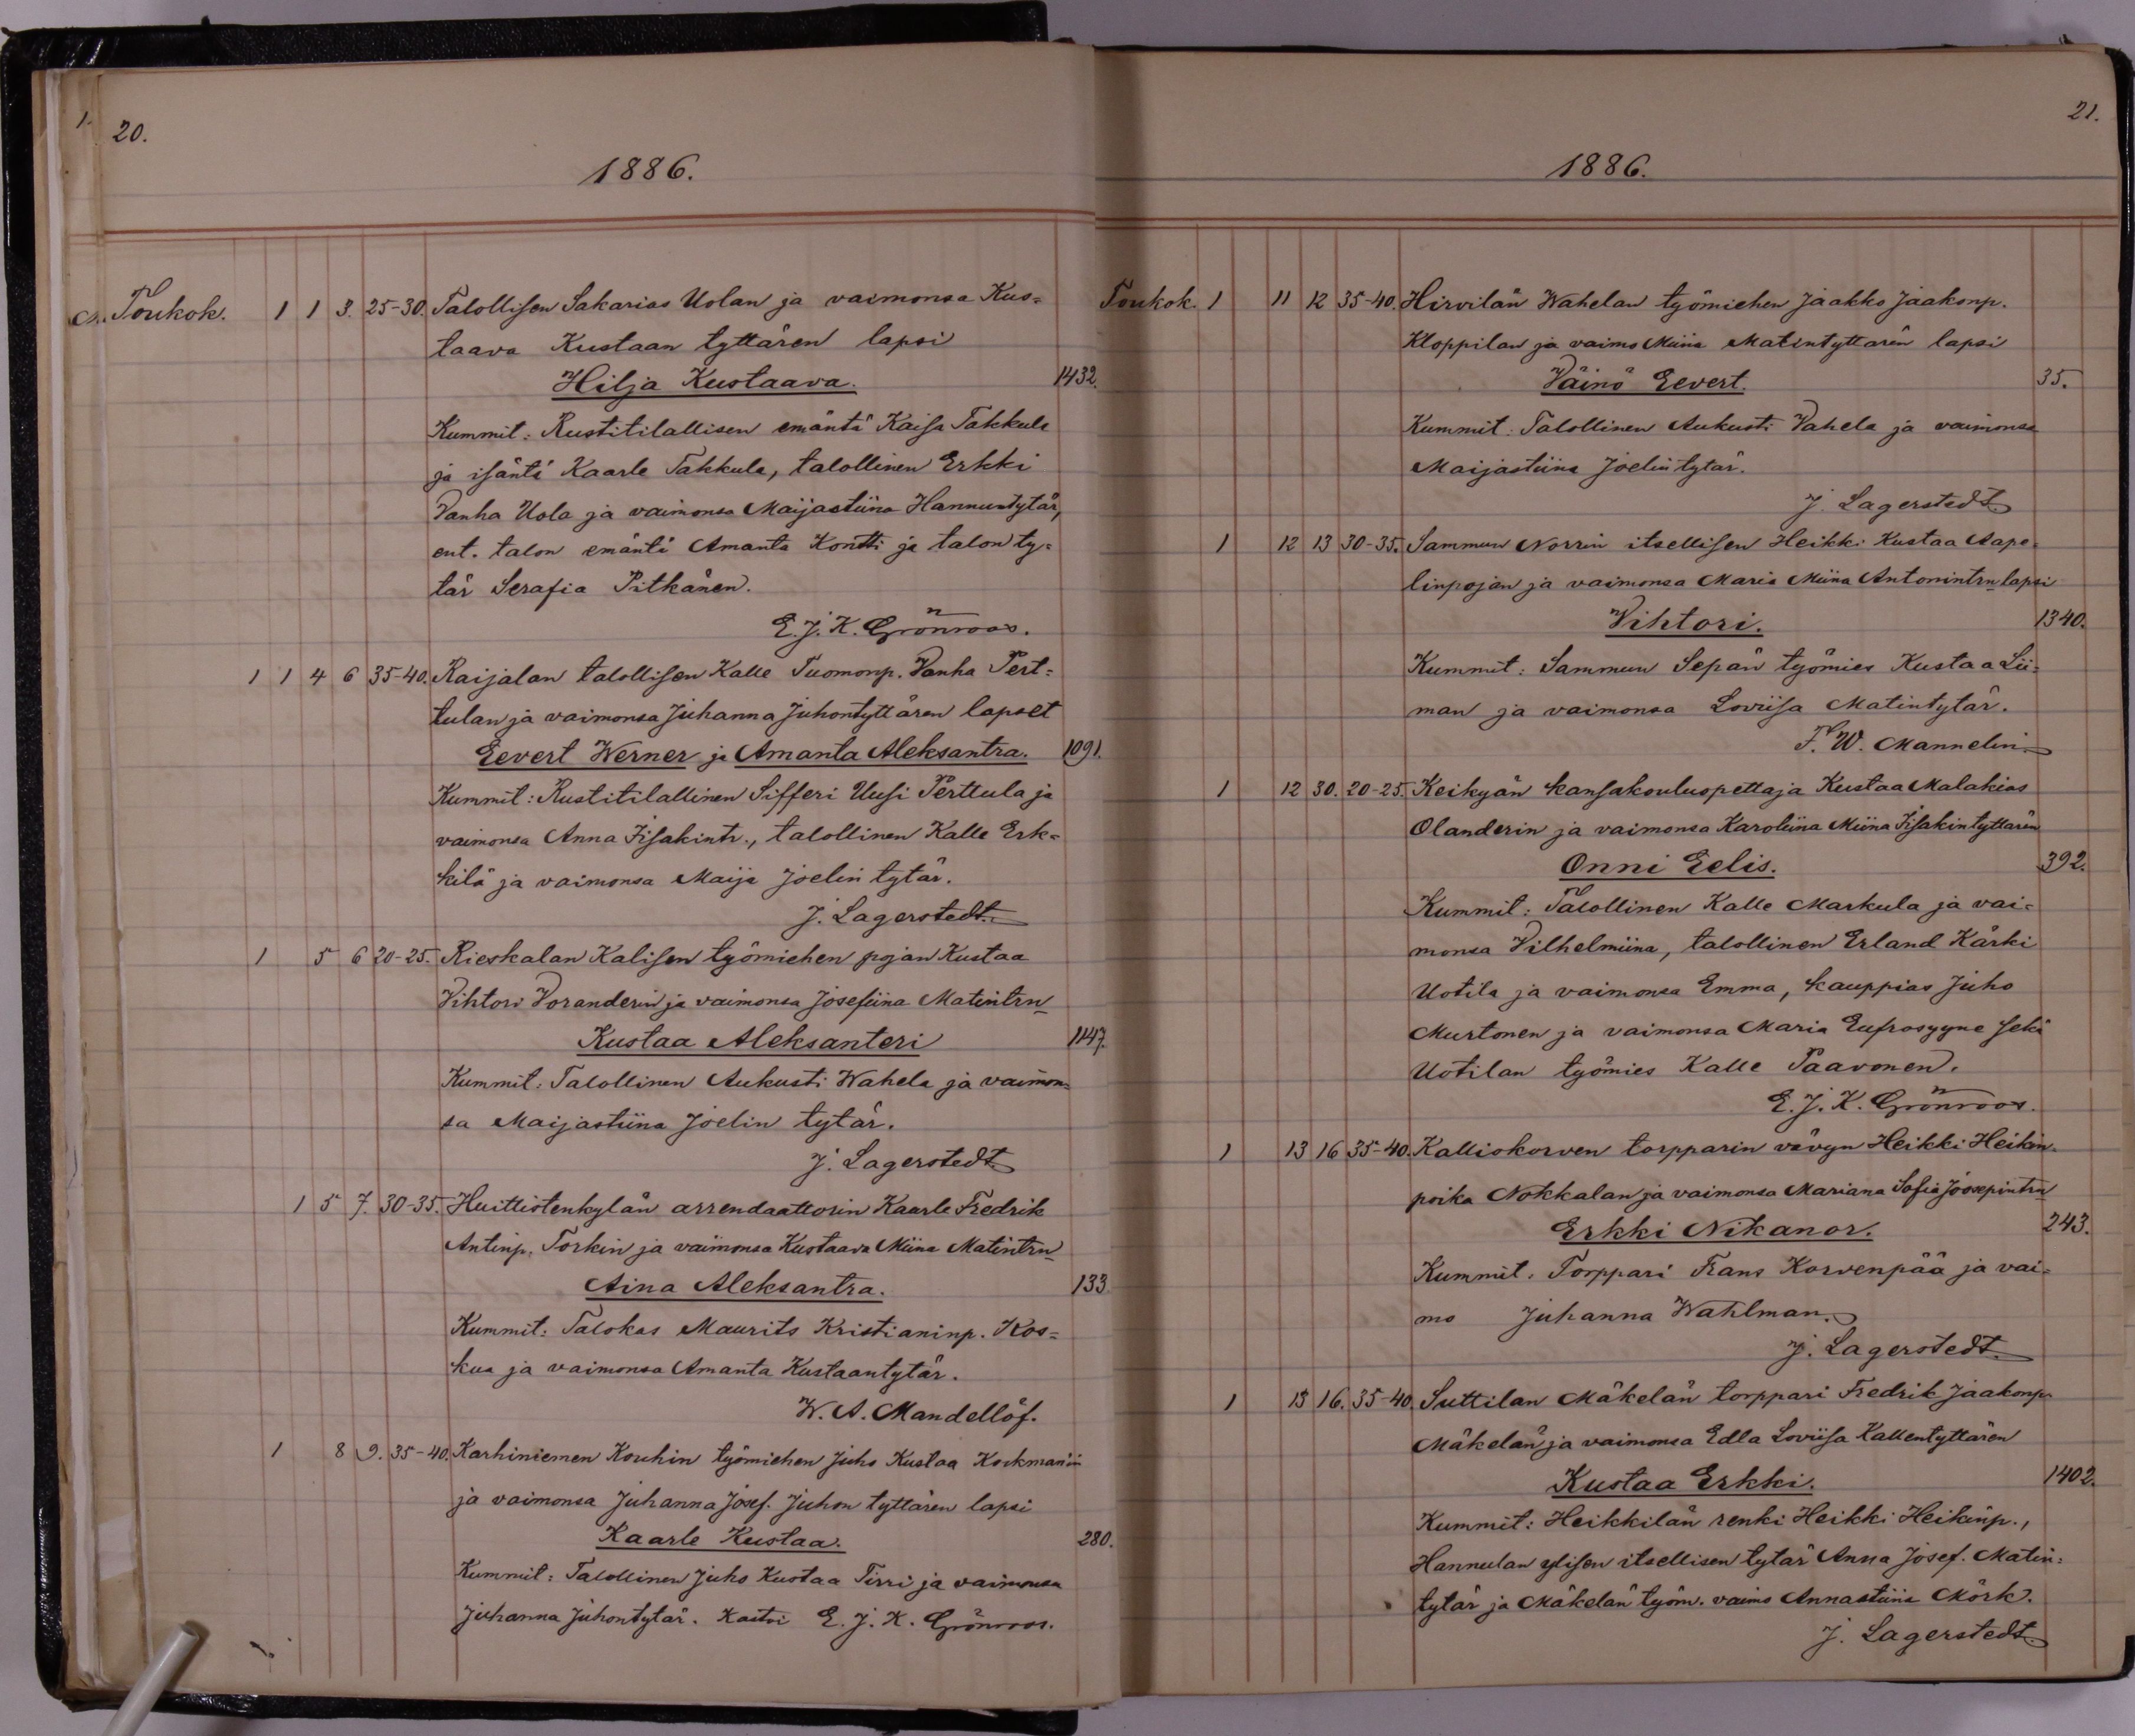 1.
20.
1886.
Toukok. 1 1 3. 25-30. Talollisen Sakarias Uolan ja vaimonsa Kus=
taava Kustaan tyttären lapsi
Hilja Kustaava. 1432.
Kummit: Rustitilallisen emäntä Kaisa Takkula
ja isäntä Kaarle Takkula, talollinen Erkki
Vanha Uola ja vaimonsa Maijastiina Hannuntytär,
ent. talon emäntä Amanta Kontti ja talon ty=
tär Serafia Pitkänen.
E. J. K. Grönroos.
1 1 4 6 35-40. Raijalan talollisen Kalle Tuomonp. Vanha Pert=
tulan ja vaimonsa Juhanna Juhontyttären lapset
Eevert Werner ja Amanta Aleksantra. 1091.
Kummit: Rustitilallinen Sifferi Uusi Perttula ja
vaimonsa Anna Iisakintr., talollinen Kalle Erk=
kilä ja vaimonsa Maija Joelin tytär.
J. Lagerstedt.
1 5 6 20-25. Rieskalan Kalisen työmiehen pojan Kustaa
Vihtori Voranderin ja vaimonsa Josefiina Matintrn
Kustaa Aleksanteri 1147.
Kummit: Talollinen Aukusti Wahela ja vaimon=
sa Maijastiina Joelin tytär.
J. Lagerstedt
1 5 7. 30-35. Huittistenkylän arrendaattorin Kaarle Fredrik
Antinp. Torkin ja vaimonsa Kustaava Miina Matintrn
Aina Aleksantra. 133
Kummit: Talokas Maurits Kristianinp. Kos=
kua ja vaimonsa Amanta Kustaantytär.
W. A. Mandellöf.
1 8 9. 35-40. Karhiniemen Kouhin työmiehen Juho Kustaa Korkman'in
ja vaimonsa Juhanna Josef. Juhon tyttären lapsi
Kaarle Kustaa. 280.
Kummit: Talollinen Juho Kustaa Tirri ja vaimonsa
Juhanna Juhontytär. Kastoi E. J. K. Grönroos.
21.
1886.
Toukok. 1 11 12 35-40. Hirvilän Wahelan työmiehen Jaakko Jaakonp.
Kloppilan ja vaimo Miina Matintyttären lapsi
Väinö Eevert. 35.
Kummit: Talollinen Aukusti Vahela ja vaimonsa
Maijastiina Joelin tytär.
J. Lagerstedt
1 12 13 30-35. Sammun Norrin itsellisen Heikki Kustaa Aape=
linpojan ja vaimonsa Maria Miina Antonintrn lapsi
Vihtori. 1340.
Kummit: Sammun Sepän työmies Kustaa Lii=
man ja vaimonsa Loviisa Matintytär.
F. W. Mannelin.
1 12 30. 20-25. Keikyän kansakouluopettaja Kustaa Malakias
Olanderin ja vaimonsa Karoliina Miina Iisakintyttären
Onni Eelis. 392.
Kummit: Talollinen Kalle Markula ja vai=
monsa Vilhelmiina, talollinen Erland Kärki
Uotila ja vaimonsa Emma, kauppias Juho
Murtonen ja vaimonsa Maria Eufrosyyne sekä
Uotilan työmies Kalle Paavonen.
E. J. K. Grönroos.
1 13 16 35-40. Kalliokorven torpparin vävyn Heikki Heikin=
poika Nokkalan ja vaimonsa Mariana Sofia Joosepintrn
Erkki Nikanor. 243.
Kummit: Torppari Frans Korvenpää ja vai=
mo Juhanna Wahlman.
J. Lagerstedt.
1 13 16. 35-40. Suttilan Mäkelän torppari Fredrik Jaakonp.
Mäkelän ja vaimonsa Edla Loviisa Kallentyttären
Kustaa Erkki. 1402.
Kummit: Heikkilän renki Heikki Heikinp.,
Hannulan ylisen itsellisen tytär Anna Josef. Matin=
tytär ja Mäkelän työm. vaimo Annastiina Mörk.
J. Lagerstedt